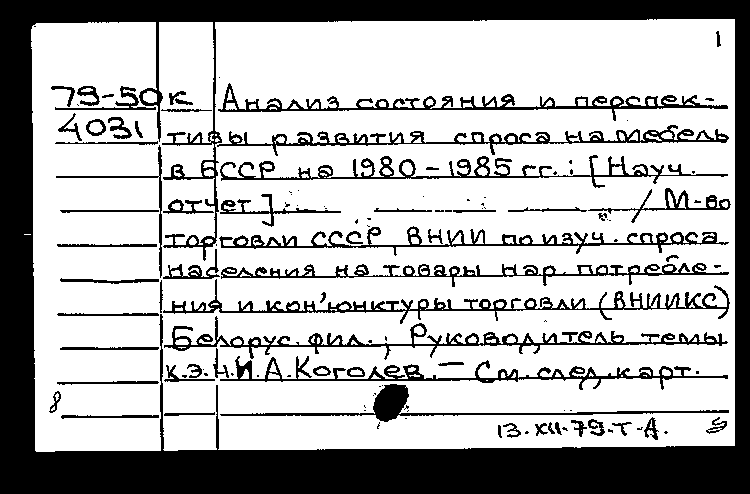 1
79-50к Анализ состояния и перспек-
4031 тивы развития спроса на мебель
в БССР на 1980-1985 гг.: [Науч.
отчет] / М-во
торговли СССР, ВНИИ по изуч. спроса
населения на товары нар. потребле-
ния и кон'юнктуры торговли (ВНИИКС)
Белорус. фил.; Руководитель темы
к.э.н. И.А. Коголев. — См. след. карт.
8
13.XII.79.Т-А.